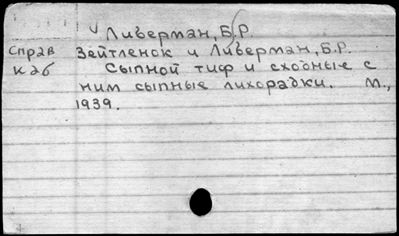 Либерман, Б.Р.
Справ Зейтленок и Либерман, Б.Р.
каб Сыпной тиф и сходные с
ним сыпные лихорадки. М.,
1939.